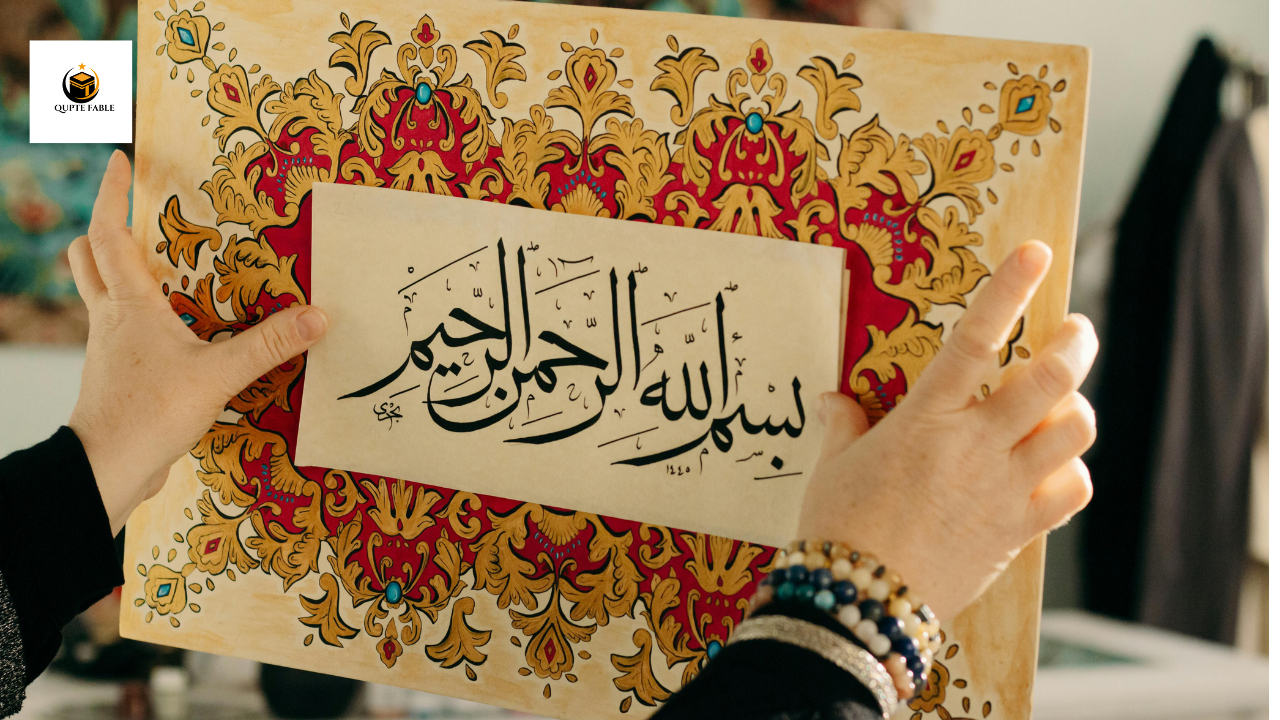 QUPTE FABLE
بسم الله الرحمن الرحيم
١٤٤٥